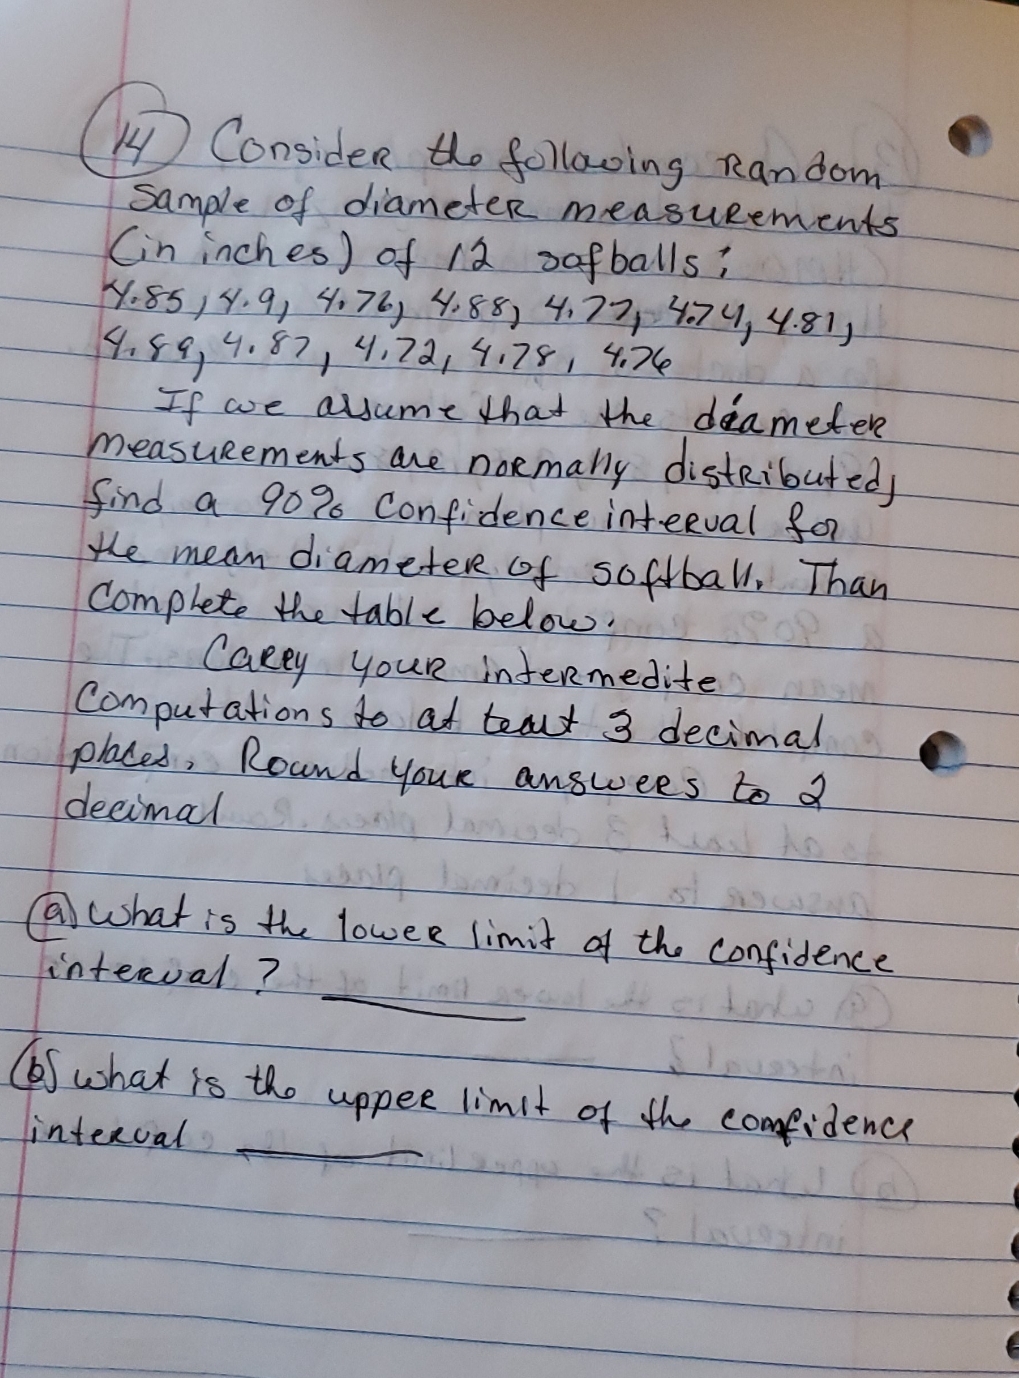 14 Consider the following Random
sample of diameter measurements
(in inches) of 12 safballs:
4.85, 4.9, 4.76, 4.88, 4.77, 4.74, 4.81,
4.89, 4.87, 4.72, 4.78, 4.76
If we assume that the diameter
measurements are normally distributed,
find a 90% Confidence interval for
the mean diameter of softball. Than
Complete the table below.
Carry your intermedite
Computations to at least 3 decimal
places. Round your answers to 2
decimal
(a) what is the lower limit of the confidence
interval?
(b) what is the upper limit of the comfidence
interval